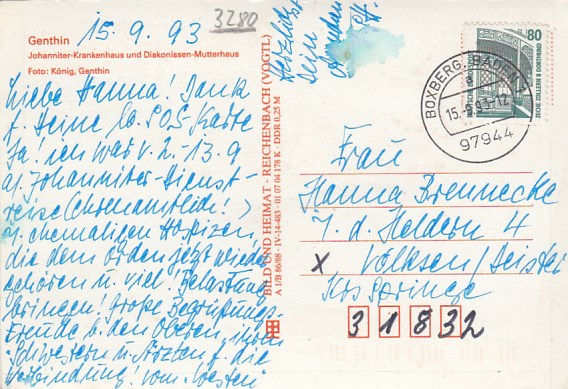 15.9.93
3280
Genthin
Johanniter-Krankenhaus und Diakonissen-Mutterhaus
Foto: König, Genthin
Liebe Hanna! Dank
f. Deine lb. SOS-Karte
Ja! ich war v. 2.-13.9
a. Johanniter-Dienst-
reise (Ehrenamtlich!)
ehemaligen Hospizen
die dem Orden jetzt wieder
gehören u. viel Belastung
bringen! Große Begrüßungs-
Freude b. den Oberen, ihren
Schwestern u. Ärzten f. die
Verbindung! vom "Westen"
Herzlichst
Dein
BILD UND HEIMAT · REICHENBACH (VOGTL)
A 1/B 86/88 · IV-14-483 · 01 07 04 178 K · DDR 0,25 M
80
DEUTSCHE BUNDESPOST
ZECHE ZOLLERN II DORTMUND
BOXBERG, BADEN 1
a
15.-9.93-12
97944
Frau
Hanna Brennecke
I. d. Heldern 4
x Völksen/Deister
Kr. Springe
31832